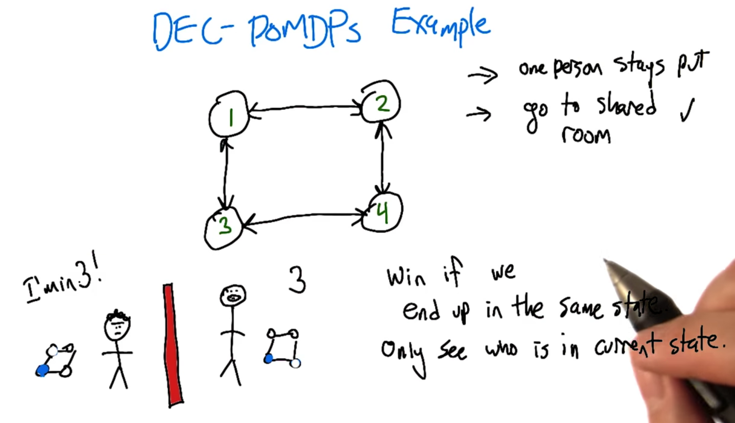 DEC-POMDPs Example
→ one person stays put
→ go to shared ✓
room
1
2
3
4
I'm in 3!
3
Win if we
end up in the same state.
Only see who is in current state.